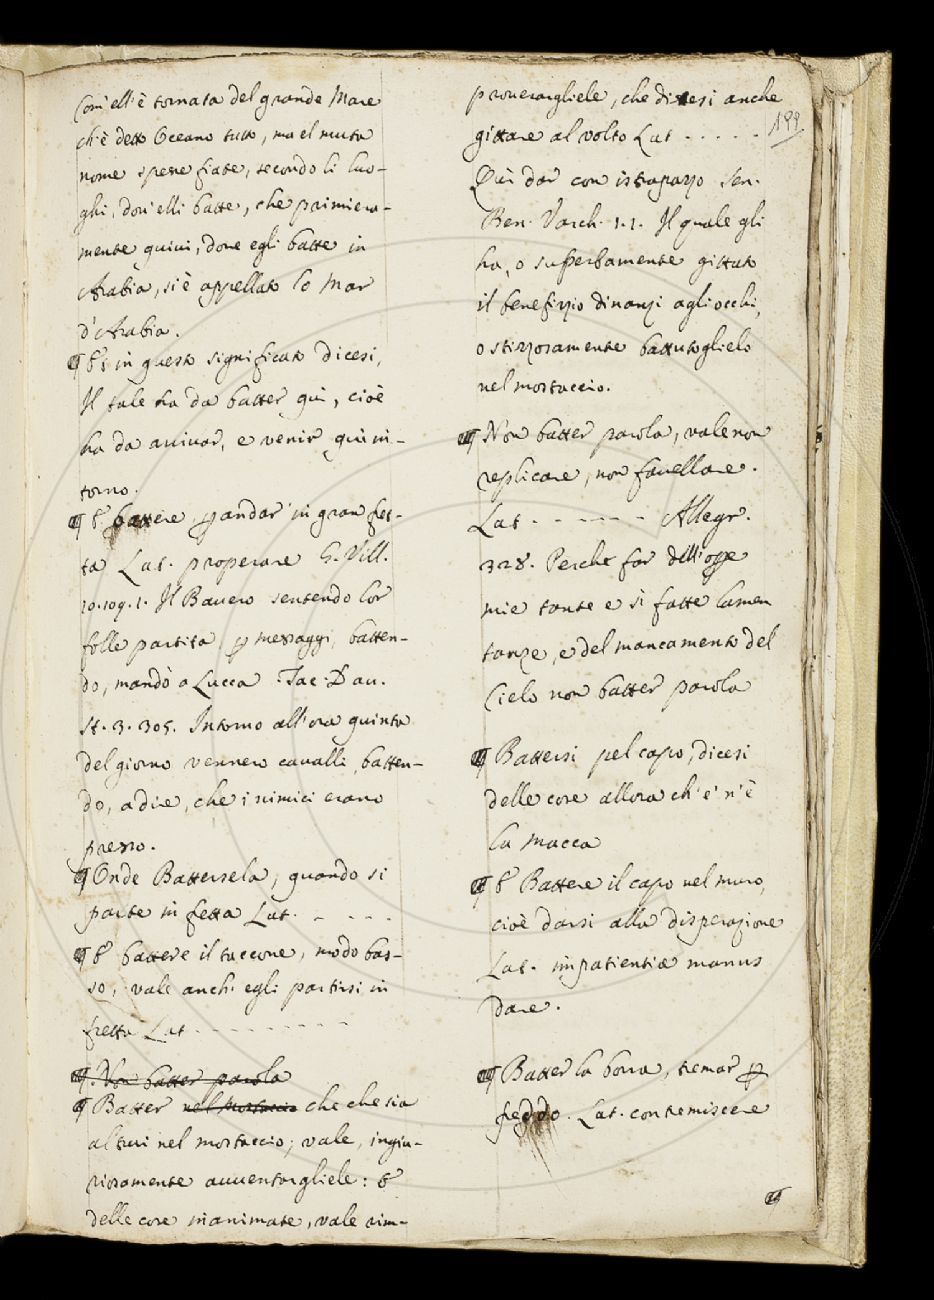 Com' elli è tornata del grande Mare
ch'è detto Oceano tutto, ma el muta
nome spesse fiate, secondo li luo-
ghi, dov' elli batte, che primiera-
mente quivi, dove egli batte in
Arabia, si è appellato lo Mar
d'Arabia.
¶ Et in questo significato dicesi,
Il tale ha da batter quì, cioè
ha da arrivar, e venir quì in-
torno.
¶ E battere, p andar in gran fret-
ta Lat. properare G. Vill.
10.109.1. Il Bavero sentendo lor
folle partita, p messaggi, batten-
do, mandò a Lucca. Tac. Dav.
St. 3. 305. Intorno all'ora quinta
del giorno vennero cavalli, batten-
do, a dire, che i nimici erano
presso.
¶ Onde Battersela, quando si
parte in fretta Lat. - - - -
¶ E battere il taccone, modo bas-
so, vale anch' egli partirsi in
fretta Lat - - - - - - - - -
¶ Non batter parola
¶ Batter nel mostaccio che che sia
altrui nel mostaccio; vale, ingiu-
riosamente avventargliele: E
delle cose inanimate, vale rim-
proverargliele, che dicesi anche
199
gittare al volto Lat - - - - -
Quì dar con istrapazzo. Sen.
Ben. Varch. 1.1. Il quale gli
ha, o superbamente gittato
il benefizio dinanzi agli occhi,
o stizzosamente battutoglielo
nel mostaccio.
¶ Non batter parola, vale non
replicare, non favellare.
Lat - - - - - - Allegr.
328. Perche far dell'
mie tante e sì fatte lamen
tanze, e del mancamento del
Cielo non batter parola
¶ Battersi pel capo, dicesi
delle cose allora ch' e' n'è
la macca
¶ E Battere il capo nel muro,
cioè darsi alla disperazione
Lat. impatientiæ manus
dare.
¶ Batter la borra, tremar p
freddo. Lat. contremiscere
¶